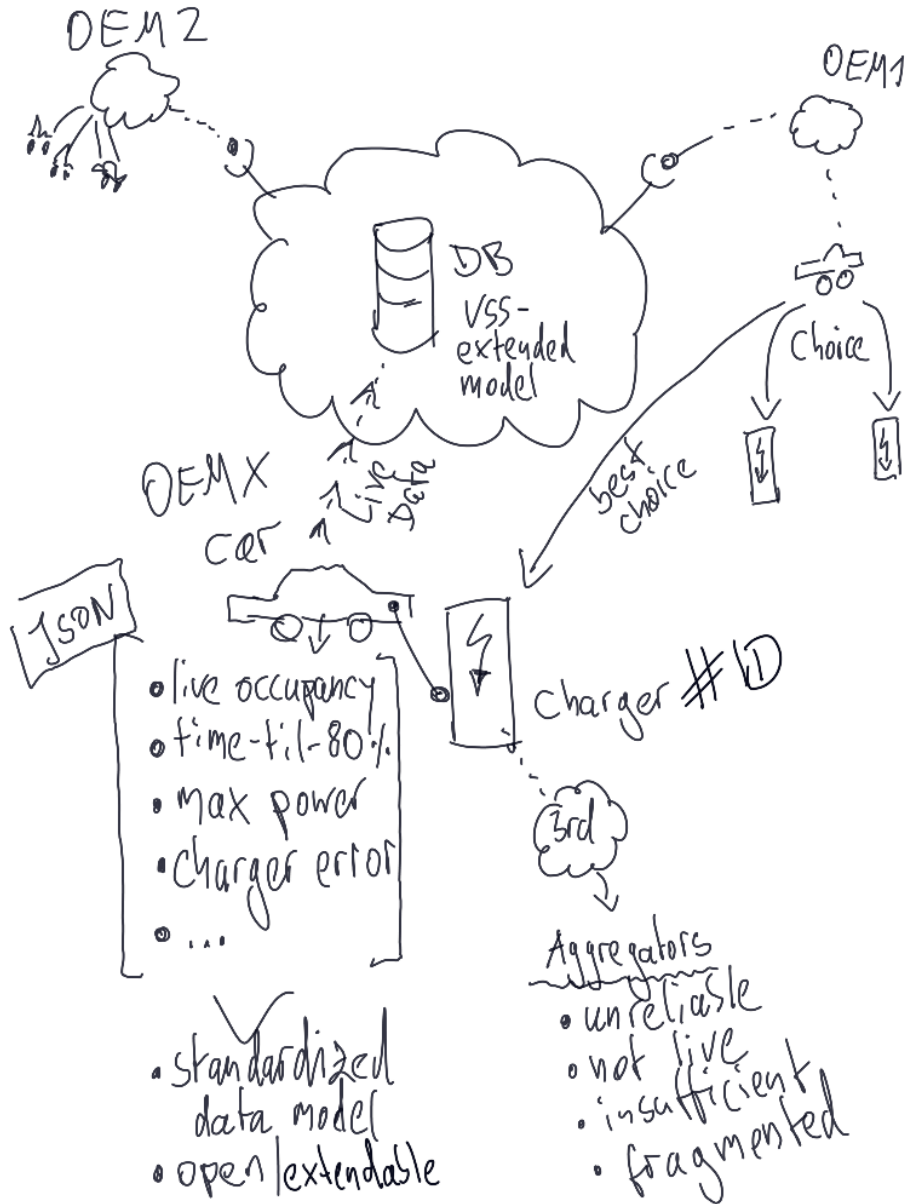 OEM 2
OEM1
DB
VSS-
extended
model
Choice
best
choice
OEM X
car
Live
Data
JSON
• live occupancy
• time-til-80%
• max power
• charger error
• ...
Charger #ID
3rd
Aggregators
• unreliable
• not live
• insufficient
• fragmented
• standardized
data model
• open/extendable